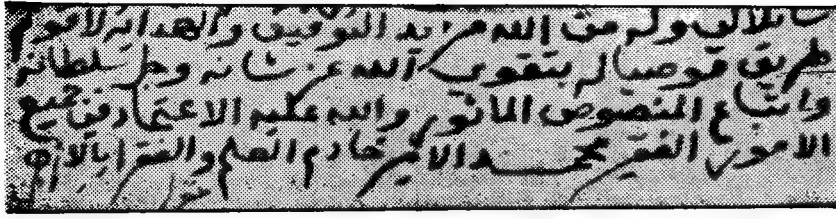 سائلا لي وله من الله مزيد التوفيق والهداية لأقوم
طريق موصيا له بتقوى الله عز شانه وجل سلطانه
واتباع المنصوص الماثور والله عليه الاعتماد في جميع
الامور الفقير محمد الامير خادم العلم والفقرا بالازهر